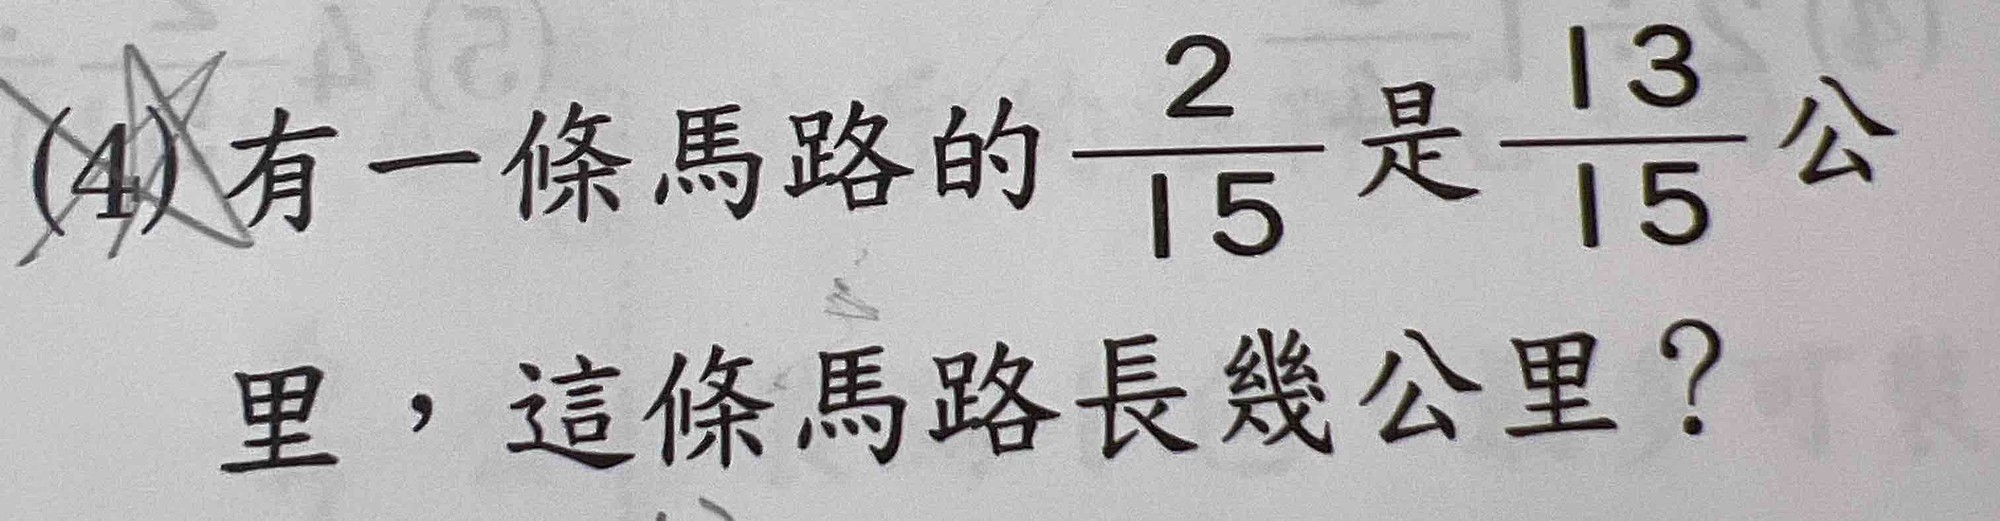 (4) 有一條馬路的 2/15 是 13/15 公
里，這條馬路長幾公里？